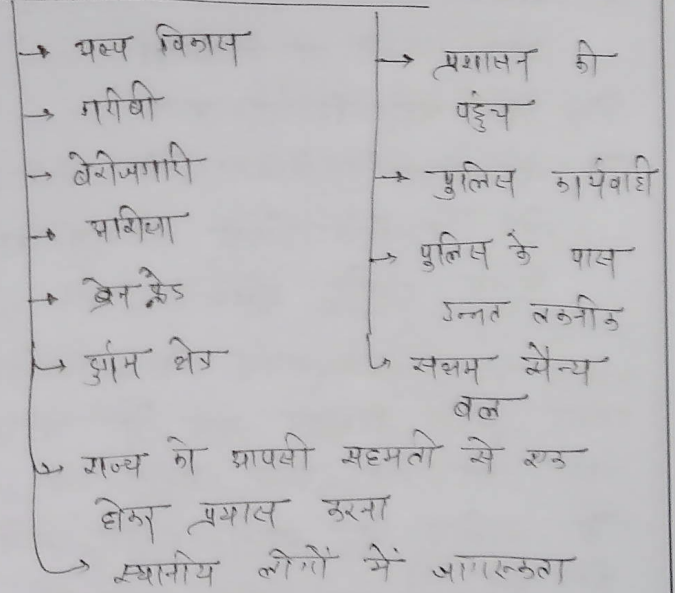 → अल्प विकास
→ गरीबी
→ बेरोजगारी
→ अशिक्षा
→ ब्रेन
→ दुर्गम क्षेत्र
→ प्रशासन की
पहुंच
→ पुलिस कार्यवाही
→ पुलिस के पास
उन्नत तकनीक
→ सक्षम सैन्य
बल
→ राज्य को आपसी सहमती से एक
होकर प्रयास करना
→ स्थानीय लोगों में जागरूकता